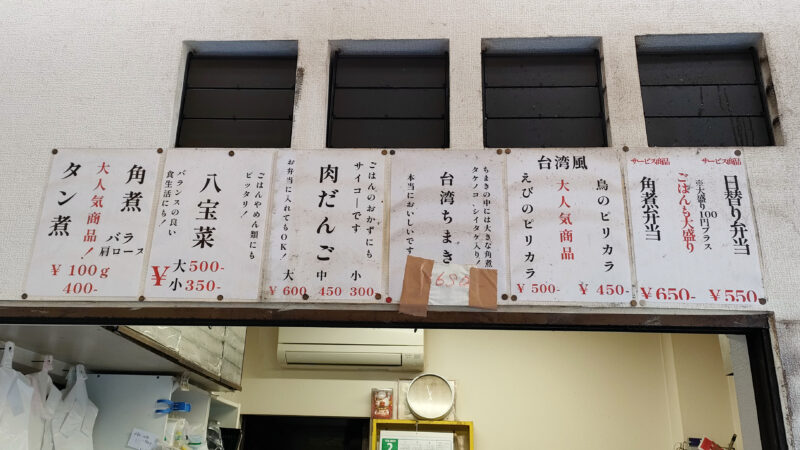 サービス商品
日替り弁当
¥550-
※大盛り100円プラス
ごはんも大盛り
サービス商品
角煮弁当
¥650-
台湾風
鳥のピリカラ
¥450-
大人気商品
えびのピリカラ
¥500-
ちまきの中には大きな角煮
タケノコ、シイタケ入り!
台湾ちまき
本当においしいです
ごはんのおかずにも
サイコーです
肉だんご
お弁当に入れてもOK!
小
300-
中
450
大
¥600
ごはんやめん類にも
ピッタリ!
八宝菜
バランスの良い
食生活にも!
¥
大500-
小350-
角煮
バラ
肩ロース
大人気商品!
タン煮
¥100g
400-